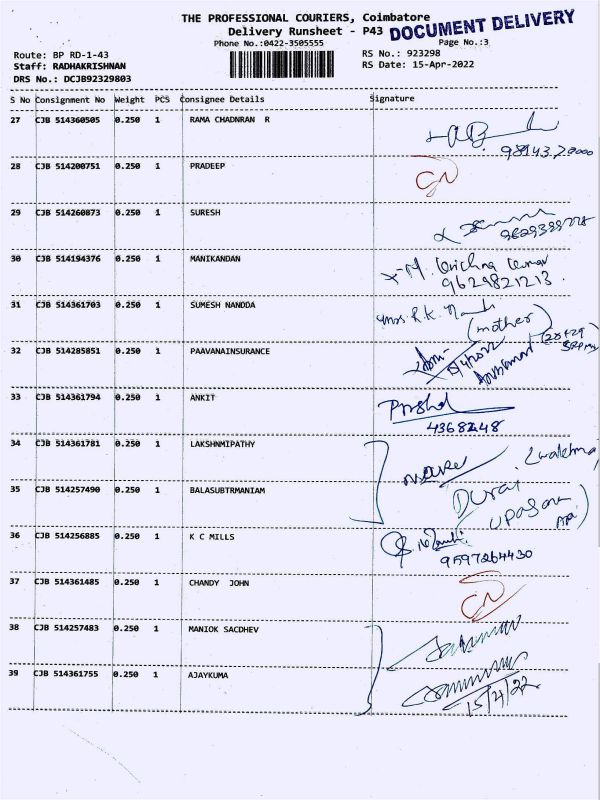 THE PROFESSIONAL COURIERS, Coimbatore
Delivery Runsheet - P43
DOCUMENT DELIVERY
Phone No.:0422-3505555
Page No.:3
Route: BP RD-1-43
RS No.: 923298
Staff: RADHAKRISHNAN
RS Date: 15-Apr-2022
DRS No.: DCJB92329803
S No Consignment No Weight PCS Consignee Details Signature
27 CJB 514360505 0.250 1 RAMA CHADNRAN R
28 CJB 514200751 0.250 1 PRADEEP
29 CJB 514260873 0.250 1 SURESH
30 CJB 514194376 0.250 1 MANIKANDAN
M. Krichna Kumar
9629821213.
31 CJB 514361703 0.250 1 SUMESH NANODA
Mrs R.K.
(mother)
32 CJB 514285851 0.250 1 PAAVANAINSURANCE
33 CJB 514361794 0.250 1 ANKIT
4368248
34 CJB 514361781 0.250 1 LAKSHNMIPATHY
35 CJB 514257490 0.250 1 BALASUBTRMANIAM
Durai
36 CJB 514256885 0.250 1 K C MILLS
9597264430
37 CJB 514361485 0.250 1 CHANDY JOHN
38 CJB 514257483 0.250 1 MANIOK SACDHEV
39 CJB 514361755 0.250 1 AJAYKUMA
15/4/22